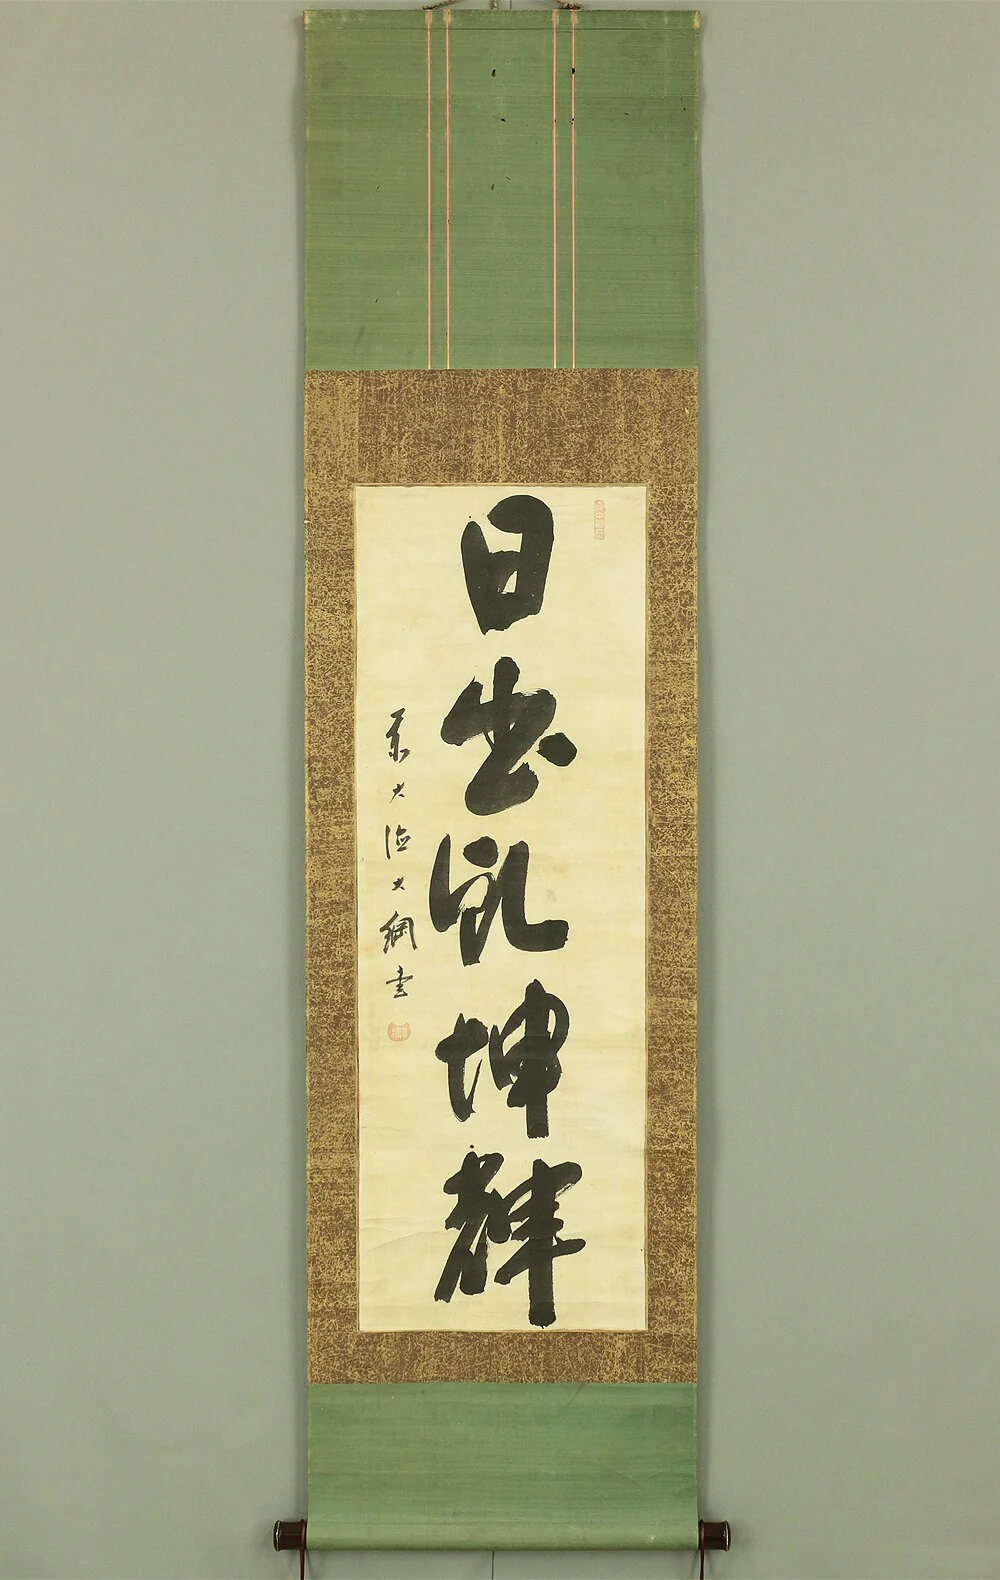 日出乾坤輝
前大徳大綱書